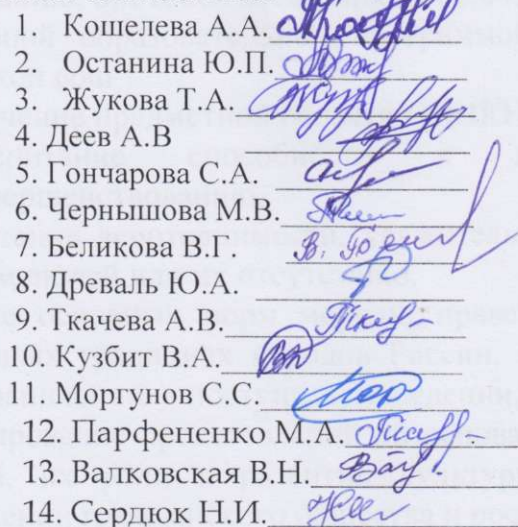 1. Кошелева А.А.
2. Останина Ю.П.
3. Жукова Т.А.
4. Деев А.В
5. Гончарова С.А.
6. Чернышова М.В.
7. Беликова В.Г.
8. Древаль Ю.А.
9. Ткачева А.В.
10. Кузбит В.А.
11. Моргунов С.С.
12. Парфененко М.А.
13. Валковская В.Н.
14. Сердюк Н.И.